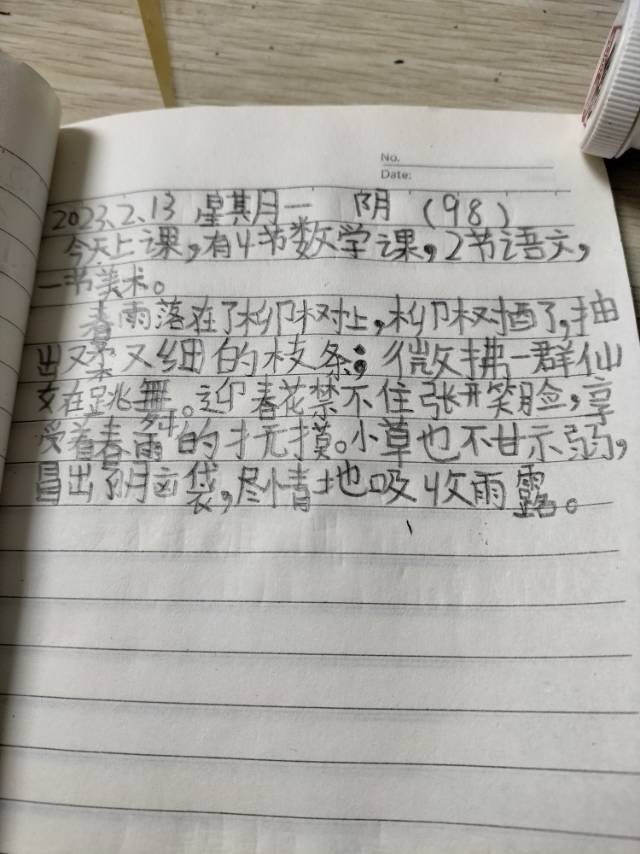 No.
Date:
2023.2.13 星期一 阴 (98)
今天上课,有4节数学课,2节语文,
一节美术。
春雨落在了柳树上,柳树洒了,抽
出又柔又细的枝条;微拂一群仙
女在跳舞。迎春花禁不住张开笑脸,享
受着春雨的抚摸。小草也不甘示弱,
冒出了脑袋,尽情地吸收雨露。